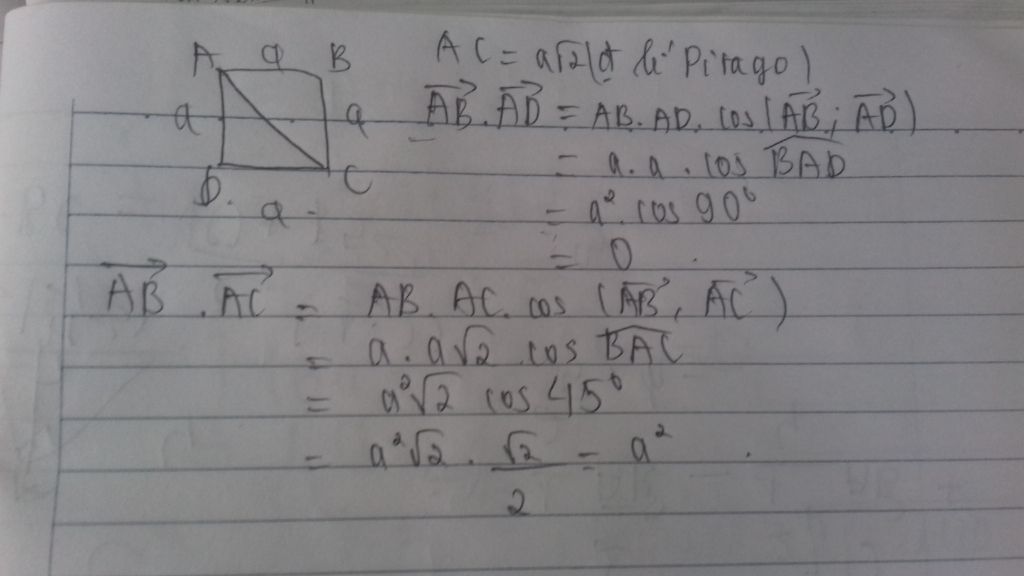 A a B
a a
D. a C
AC = a√2 (đ lí Pitago)
AB⃗.AD⃗ = AB.AD.cos(AB⃗; AD⃗)
= a.a.cos BAD̂
= a².cos 90°
= 0.
AB⃗.AC⃗ = AB.AC.cos(AB⃗, AC⃗)
= a.a√2.cos BAĈ
= a²√2 cos 45°
= a²√2.√2/2 = a².